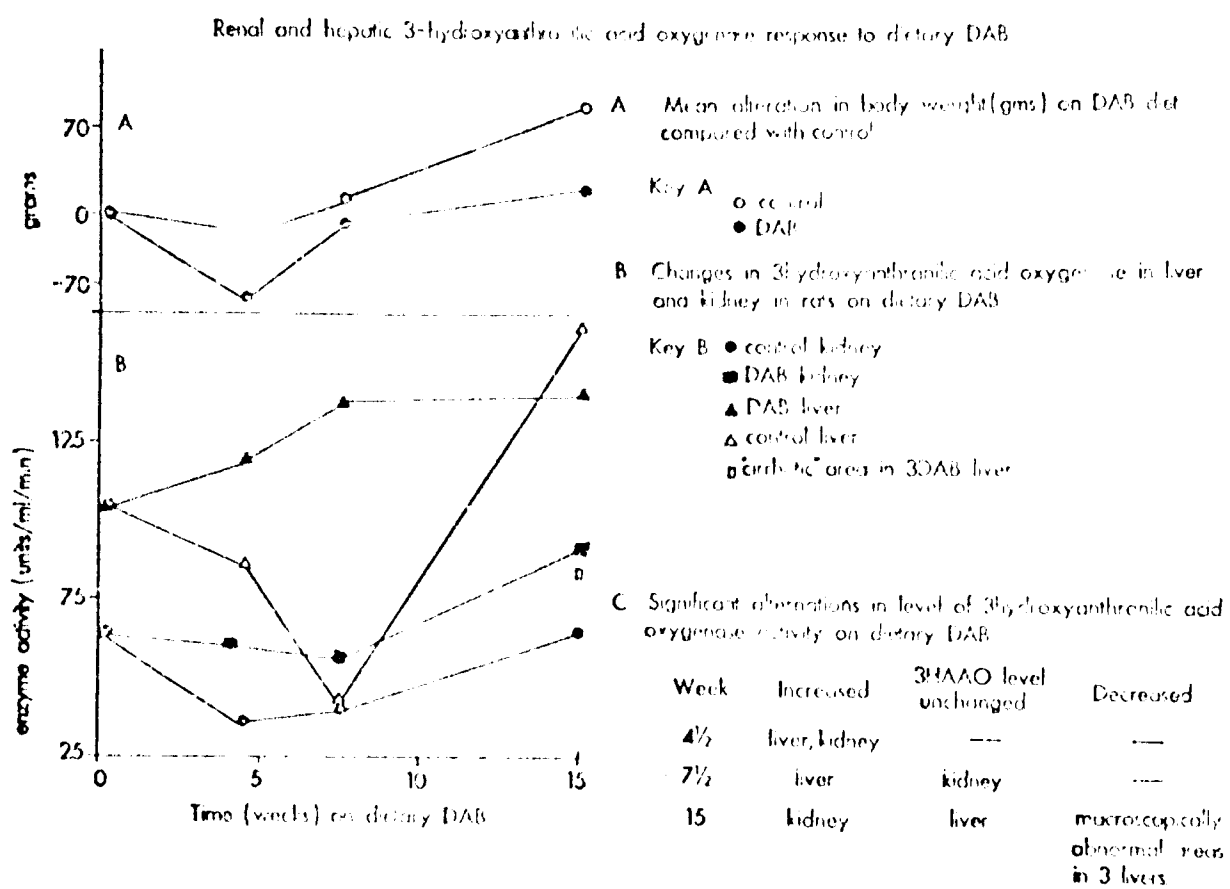 Renal and hepatic 3-hydroxyanthranilic acid oxygenase response to dietary DAB
A
70
0
-70
grams
B
125
75
25
enzyme activity (units/ml/min)
0 5 10 15
Time (weeks) on dietary DAB
A Mean alteration in body weight (gms) on DAB diet
compared with control
Key A
control
DAB
B Changes in 3hydroxyanthranilic acid oxygenase in liver
and kidney in rats on dietary DAB
Key B control kidney
DAB kidney
DAB liver
control liver
"cirrhotic" area in liver
C Significant alternations in level of 3hydroxyanthranilic acid
oxygenase activity on dietary DAB
Week Increased 3HAAO level unchanged Decreased
4½ liver, kidney — —
7½ liver kidney —
15 kidney liver macroscopically
abnormal areas
in 3 livers